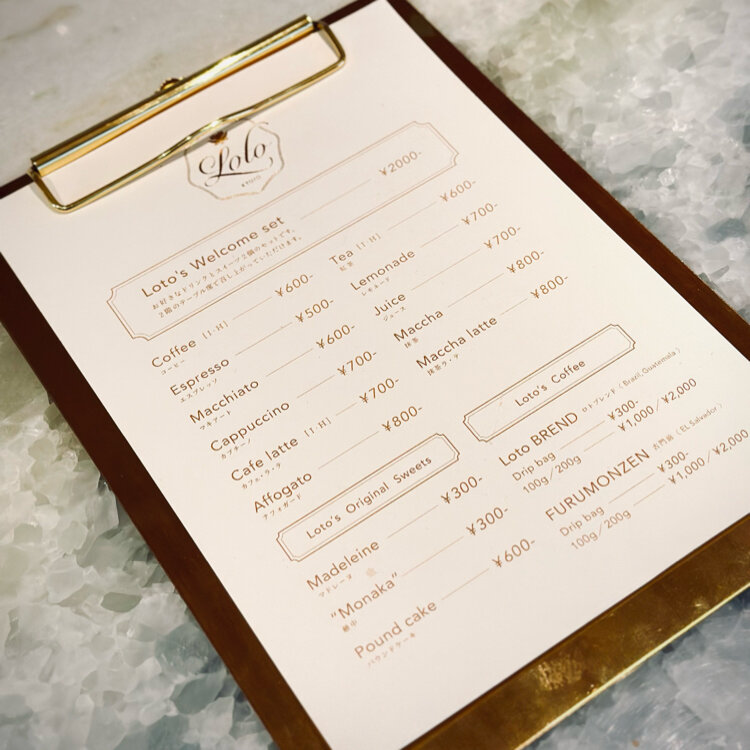 Loto
KYOTO
Loto's Welcome set ¥2000-
お好きなドリンクとスイーツ2個のセットです。
2階のテーブル席で召し上がっていただけます。
Coffee [I·H] ¥600-
コーヒー
Espresso ¥500-
エスプレッソ
Macchiato ¥600-
マキアート
Cappuccino ¥700-
カプチーノ
Cafe latte [I·H] ¥700-
カフェ・ラ・テ
Affogato ¥800-
アフォガード
Tea [I·H] ¥600-
紅茶
Lemonade ¥700-
レモネード
Juice ¥700-
ジュース
Maccha ¥800-
抹茶
Maccha latte ¥800-
抹茶ラ・テ
Loto's Original Sweets
Madeleine ¥300-
マドレーヌ
"Monaka" ¥300-
最中
Pound cake ¥600-
パウンドケーキ
Loto's Coffee
Loto BREND ロトブレンド (Brazil,Guatemala)
Drip bag ¥300-
100g/200g ¥1,000/¥2,000
FURUMONZEN 古門前 (EL Salvador)
Drip bag ¥300-
100g/200g ¥1,000/¥2,000